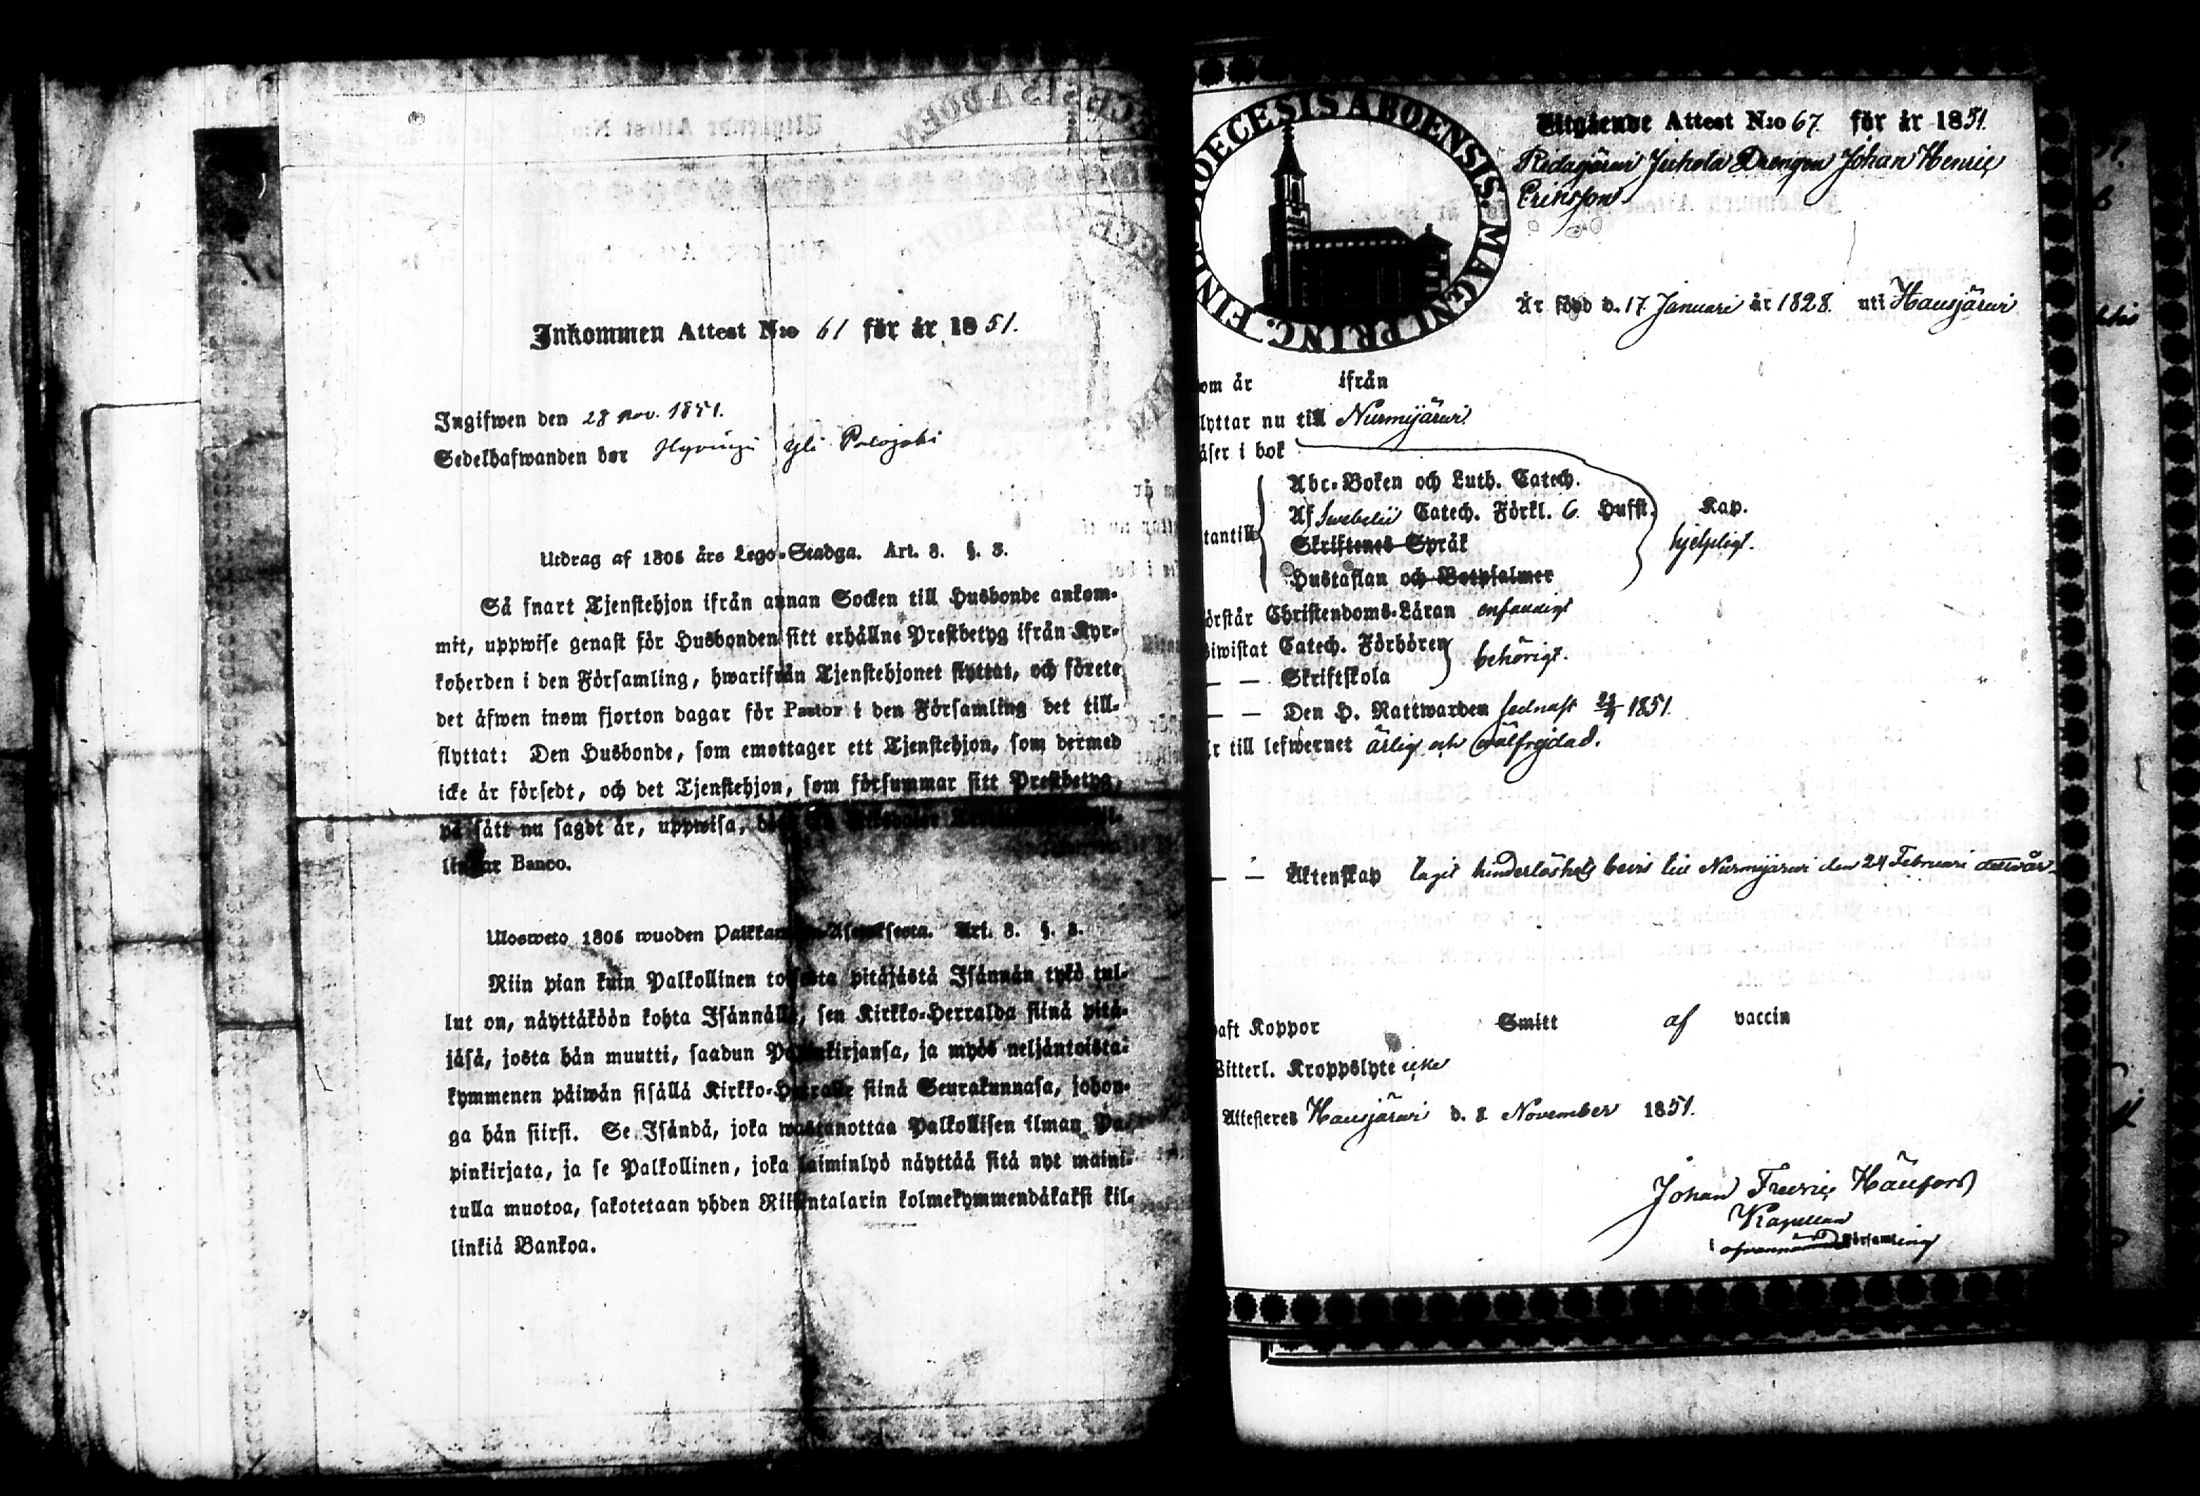 Inkommen Attest N:o 61 för år 1851.
Ingifwen den 28 nov. 1851.
Sedelhafwanden bor Hyvinge Yli Palojoki
Utdrag af 1805 års Lego-Stadga. Art. 8. §. 3.
Så snart Tjenstehjon ifrån annan Socken till Husbonde ankom-
mit, uppwise genast för Husbonden sitt erhållne Prestbetyg ifrån Kyr-
koherden i den Församling, hwarifrån Tjenstehjonet flyttat, och förete
det äfwen inom fjorton dagar för Pastor i den Församling det till-
flyttat: Den Husbonde, som emottager ett Tjenstehjon, som dermed
icke är försedt, och det Tjenstehjon, som försummar sitt Prestbetyg,
på sätt nu sagdt är, uppwisa,
lingar Banco.
Ulosweto 1805 wuoden Palkkaus-Asetuksesta. Art. 8. §. 3.
Niin pian kuin Palkollinen toisesta pitäjästä Isännän tykö tul-
lut on, näyttäköön kohta Isännälle, sen Kirkko-Herralda siinä pitä-
jäsä, josta hän muutti, saadun Papinkirjansa, ja myös neljäntoista-
kymmenen päiwän sisällä Kirkko-Herralle siinä Seurakunnasa, johon-
ga hän siirsi. Se Isändä, joka wastanottaa Palkollisen ilman Pa-
pinkirjata, ja se Palkollinen, joka laiminlyö näyttää sitä nyt maini-
tulla muotoa, sakotetaan yhden Riksintalarin kolmekymmendäkaksi kil-
linkiä Bankoa.
DIOECESIS ABOENSIS. MAGNI PRINC. FINL.
Utgående Attest N:o 67 för år 1851.
Ridasjärvi Juhola Drengen Johan Henric
Eriksson
Är född d. 17 Januari år 1828. uti Hausjärvi
om är ifrån
lyttar nu till Nurmijärvi
äser i bok
Abc-Boken och Luth. Catech.
Af Svebelii Catech. Förkl. 6 Hufst. Kap.
tantill Skriftenes Språk hjelpligt.
Hustaflan och Botpsalmer
örstår Christendoms-Läran enfaldigt
iwistat Catech. Förhören behörigt.
— — Skriftskola
— — Den H. Nattwarden sednast 1851.
r till lefwernet ärlig och wälfrejdad.
— — Äktenskap tagit hinderlöshets bevis till Nurmijärvi den 24 Februari detta år.
aft Koppor Smitt af vaccin
Witterl. Kroppslyte icke
Attesteres Hausjärvi d. 8 November 1851.
Johan Fredric Häufors
Kapellan
i ofvannämnde Församling